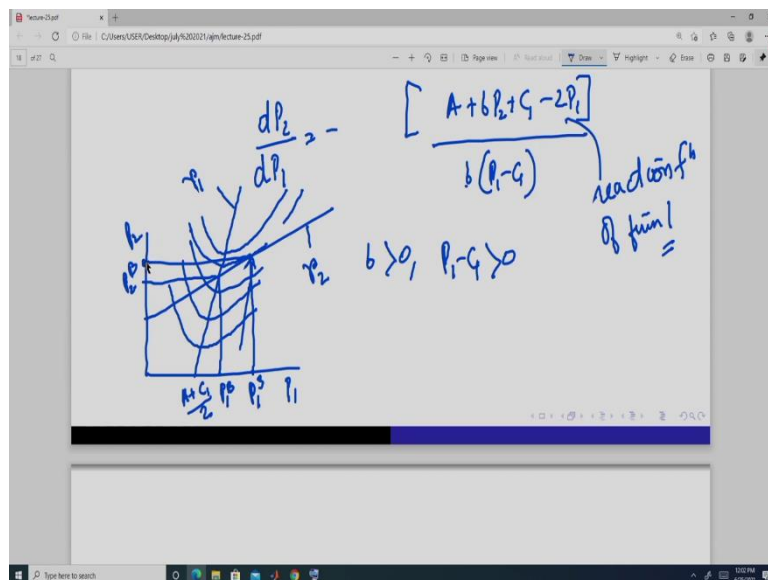 lecture-25.pdf
File | C:/Users/USER/Desktop/july%202021/ajm/lecture-25.pdf
18 of 27
Page view | Read aloud | Draw Highlight Erase
dP₂/dP₁ = - [A+bP₂+C₁-2P₁] / b(P₁-C₁)
reaction fⁿ
of firm 1
b>0, P₁-C₁>0
r₁
r₂
P₂
P₂ᴮ
(A+C₁)/2 P₁ᴮ P₁ˢ P₁
Type here to search
12:02 PM